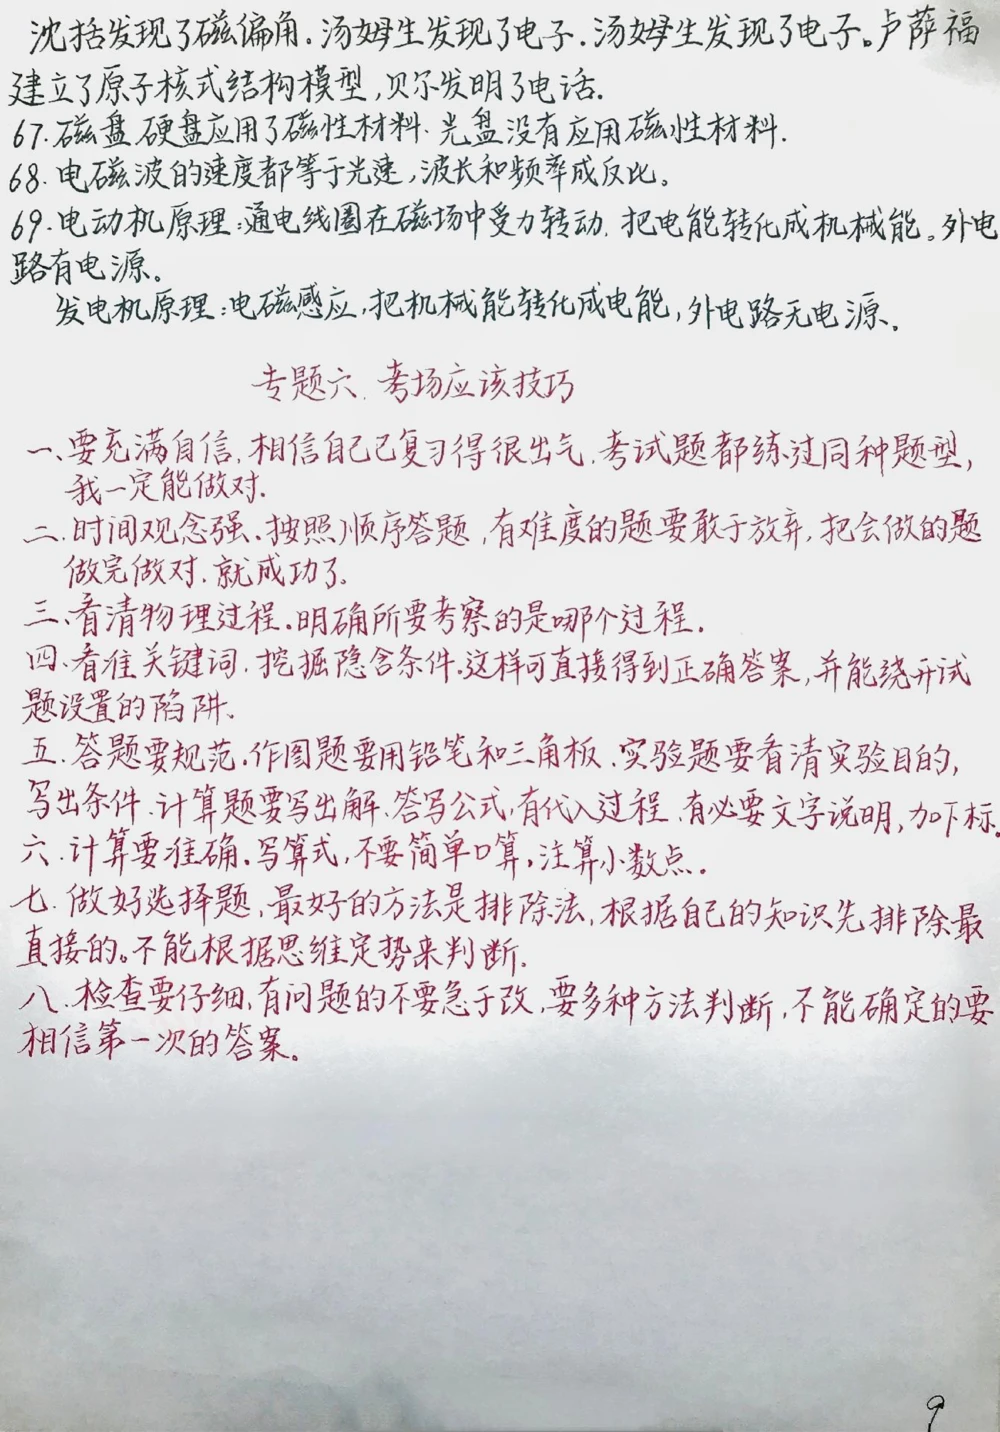 沈括发现了磁偏角.汤姆生发现了电子.汤姆生发现了电子。卢萨福
建立了原子核式结构模型,贝尔发明了电话.
67.磁盘、硬盘应用了磁性材料、光盘没有应用磁性材料.
68.电磁波的速度都等于光速,波长和频率成反比。
69.电动机原理:通电线圈在磁场中受力转动.把电能转化成机械能。外电
路有电源。
发电机原理:电磁感应,把机械能转化成电能,外电路无电源.
专题六.考场应该技巧
一、要充满自信.相信自己已复习得很出气.考试题都练过同种题型,
我一定能做对.
二.时间观念强.按照顺序答题,有难度的题要敢于放弃.把会做的题
做完做对.就成功了.
三、看清物理过程.明确所要考察的是哪个过程.
四、看准关键词.挖掘隐含条件.这样可直接得到正确答案,并能绕开试
题设置的陷阱.
五.答题要规范.作图题要用铅笔和三角板.实验题要看清实验目的,
写出条件.计算题要写出解、答写公式,有代入过程.有必要文字说明,加下标.
六.计算要准确.写算式,不要简单口算,注算小数点.
七.做好选择题,最好的方法是排除法,根据自己的知识先排除最
直接的。不能根据思维定势来判断.
八.检查要仔细,有问题的不要急于改,要多种方法判断,不能确定的要
相信第一次的答案。
9